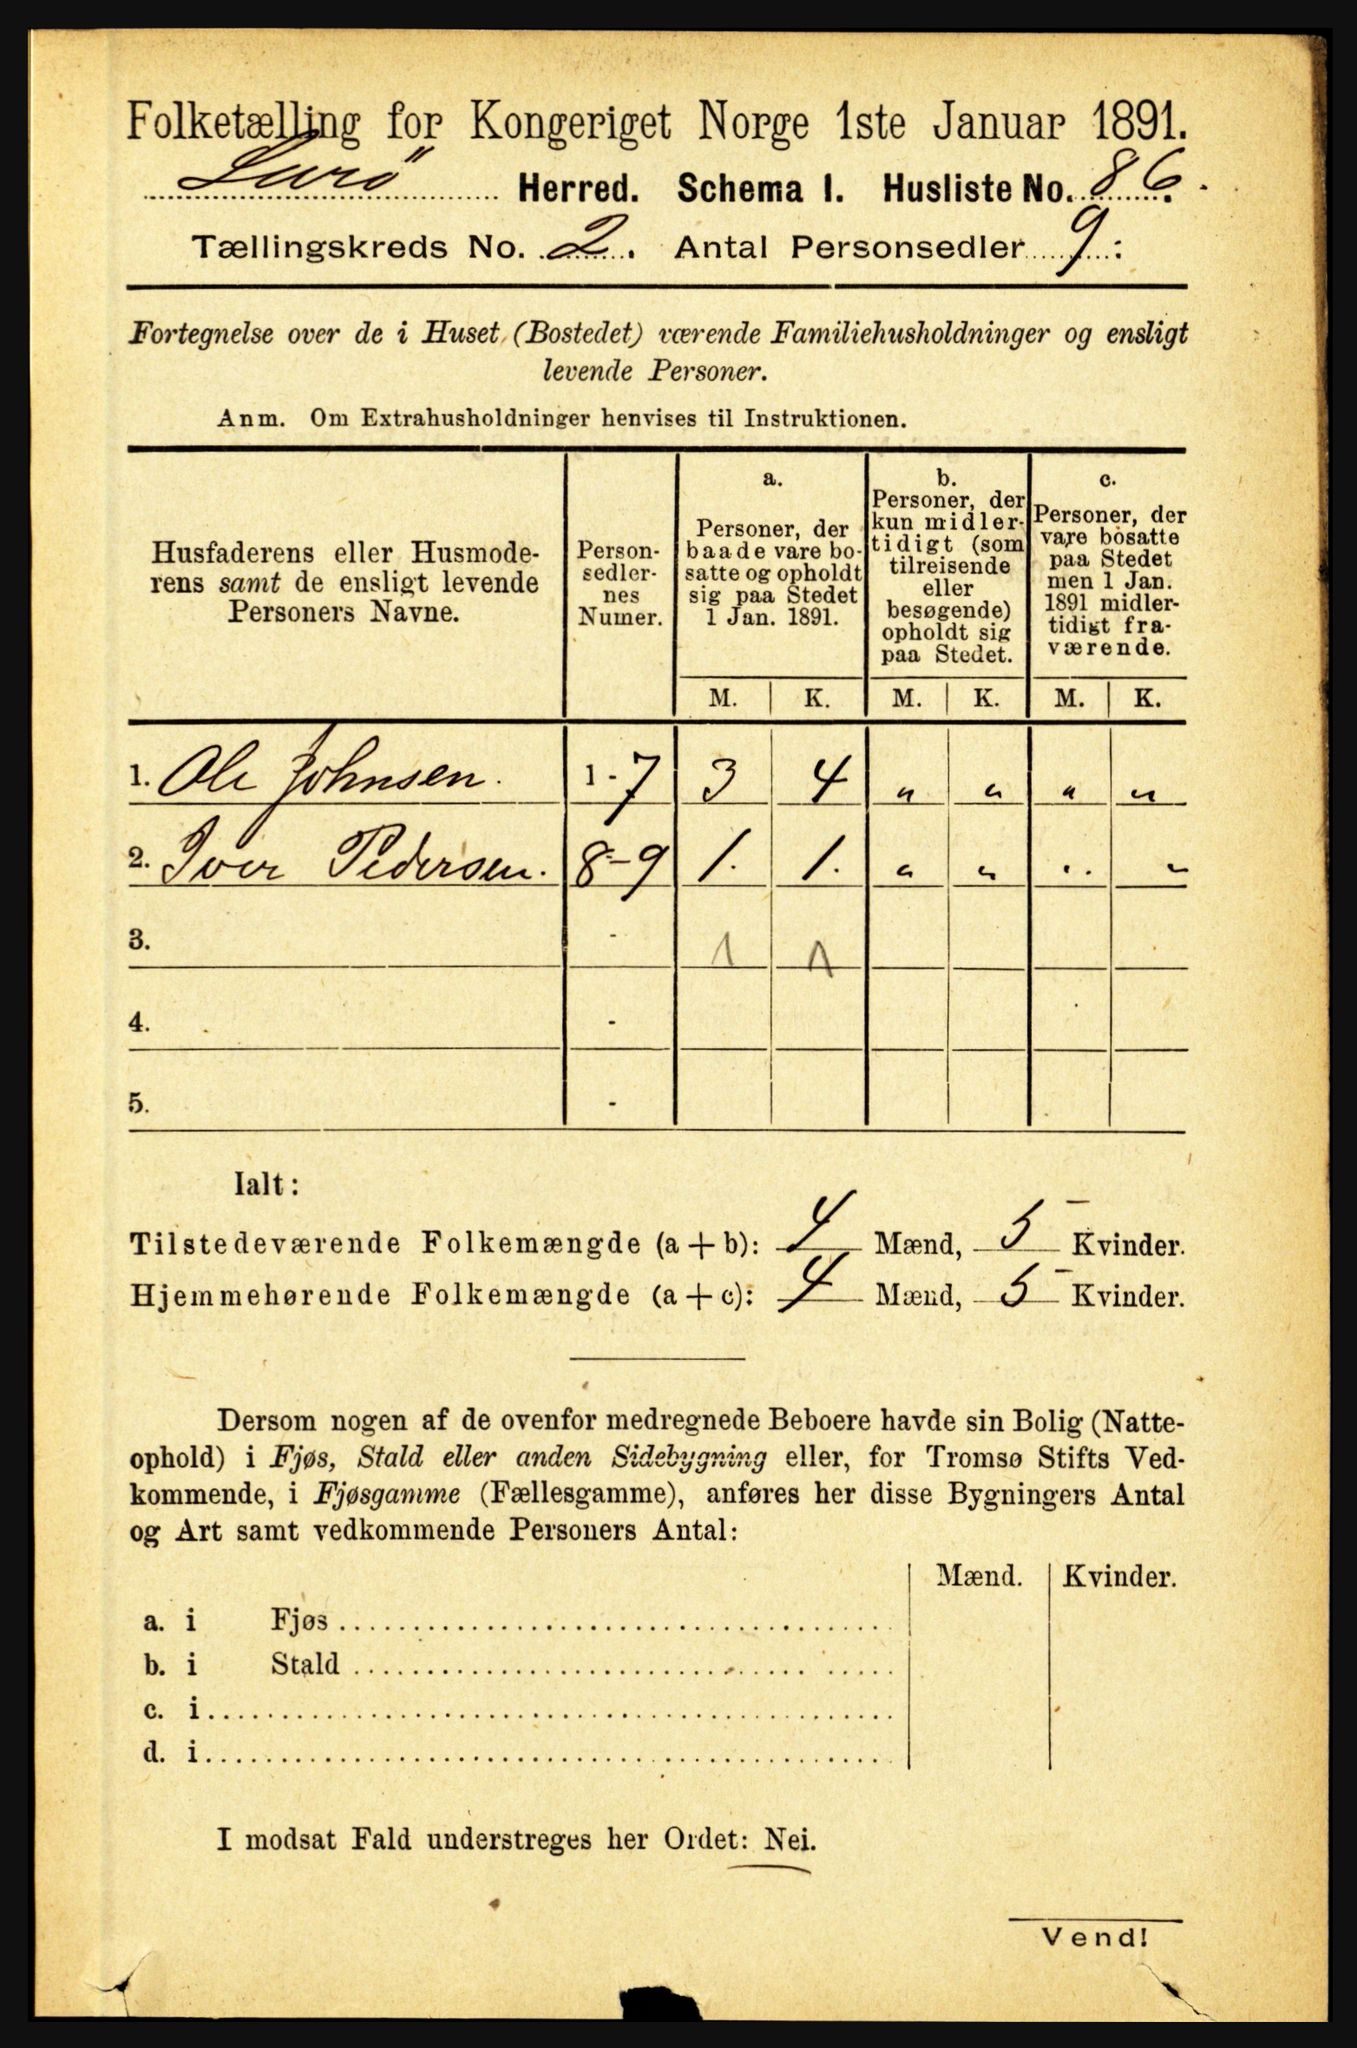 Folketælling for Kongeriget Norge 1ste Januar 1891.
Lurö Herred. Schema I. Husliste No. 86.
Tællingskreds No. 2. Antal Personsedler 9:
Fortegnelse over de i Huset (Bostedet) værende Familiehusholdninger og ensligt
levende Personer.
Anm. Om Extrahusholdninger henvises til Instruktionen.
Husfaderens eller Husmode-
rens samt de ensligt levende
Personers Navne.
Person-
sedler-
nes
Numer.
a.
Personer, der
baade vare bo-
satte og opholdt
sig paa Stedet
1 Jan. 1891.
b.
Personer, der
kun midler-
tidigt (som
tilreisende
eller
besøgende)
opholdt sig
paa Stedet.
c.
Personer, der
vare bosatte
paa Stedet
men 1 Jan.
1891 midler-
tidigt fra-
værende.
M. K. M. K. M. K.
1. Ole Johnsen. 1-7 3 4 " " " "
2. Iver Pedersen. 8-9 1. 1. " " " "
3. - 1 1
4. -
5. -
Ialt:
Tilstedeværende Folkemængde (a+b): 4 Mænd, 5 Kvinder.
Hjemmehørende Folkemængde (a+c): 4 Mænd, 5 Kvinder.
Dersom nogen af de ovenfor medregnede Beboere havde sin Bolig (Natte-
ophold) i Fjøs, Stald eller anden Sidebygning eller, for Tromsø Stifts Ved-
kommende, i Fjøsgamme (Fællesgamme), anføres her disse Bygningers Antal
og Art samt vedkommende Personers Antal:
Mænd. Kvinder.
a. i Fjøs
b. i Stald
c. i
d. i
I modsat Fald understreges her Ordet: Nei.
Vend!